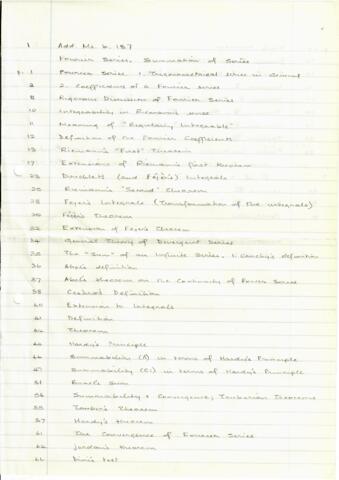 1 Add. Ms. b. 187
Fourier Series. Summation of Series
p. 1 Fourier Series 1. Trigonometrical series in General
2 2. Coefficients of a Fourier series
8 Rigorous Discussion of Fourier Series
10 Integrability in Riemann's sense
11 Meaning of "Regularly Integrable"
12 Definition of the Fourier Coefficients
13 Riemann's "First" Theorem
17 Extensions of Riemann's first theorem
23 Dirichlet's (and Fejér's) Integrals
25 Riemann's "Second" Theorem
28 Fejer's Integrals (Transformation of the integrals)
30 Fejér's Theorem
32 Extension of Fejer's Theorem
34 General Theory of Divergent Series
35 The "Sum" of an Infinite Series. 1. Cauchy's definition
36 Abel's definition
37 Abel's theorem on the Continuity of Power Series
38 Cesàro's Definition
40 Extension to Integrals
41 Definition
42 Theorem
43 Hardy's Principle
44 Summability (A) in terms of Hardy's Principle
47 Summability (C1) in terms of Hardy's Principle
51 Borel's Sum
54 Summability & Convergence; Tauberian Theorems
55 Tauber's Theorem
57 Hardy's theorem
61 The Convergence of Fourier Series
62 Jordan's theorem
64 Dini's test